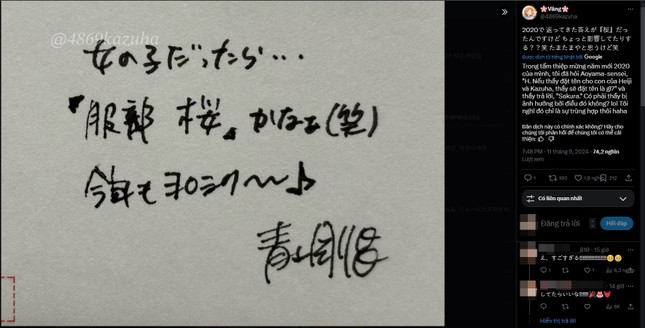 @4869kazuha
女の子だったら…
「服部 桜」かなぁ(笑)
今年もヨロシク〜〜♪
青山剛昌
🌸Vâng🌸
@4869kazuha
2020で 返ってきた答えが『桜』だっ
たんですけど ちょっと影響してたりす
る？？笑 たまたまやと思うけど笑
Được dịch từ tiếng Nhật bởi Google
Trong tấm thiệp mừng năm mới 2020
của mình, tôi đã hỏi Aoyama-sensei,
"H. Nếu thầy đặt tên cho con của Heiji
và Kazuha, thầy sẽ đặt tên là gì?" và
thầy trả lời, "Sakura." Có phải thầy bị
ảnh hưởng bởi điều đó không? lol Tôi
nghĩ đó chỉ là sự trùng hợp thôi haha
Bản dịch này có chính xác không? Hãy cho
chúng tôi phản hồi để chúng tôi có thể cải
thiện:
7:48 PM · 11 tháng 9, 2024 · 74,2 nghìn
Lượt xem
Có liên quan nhất
Đăng trả lời
Hồi đáp
え、すごすぎる
してたらいいな
Hiển thị trả lời